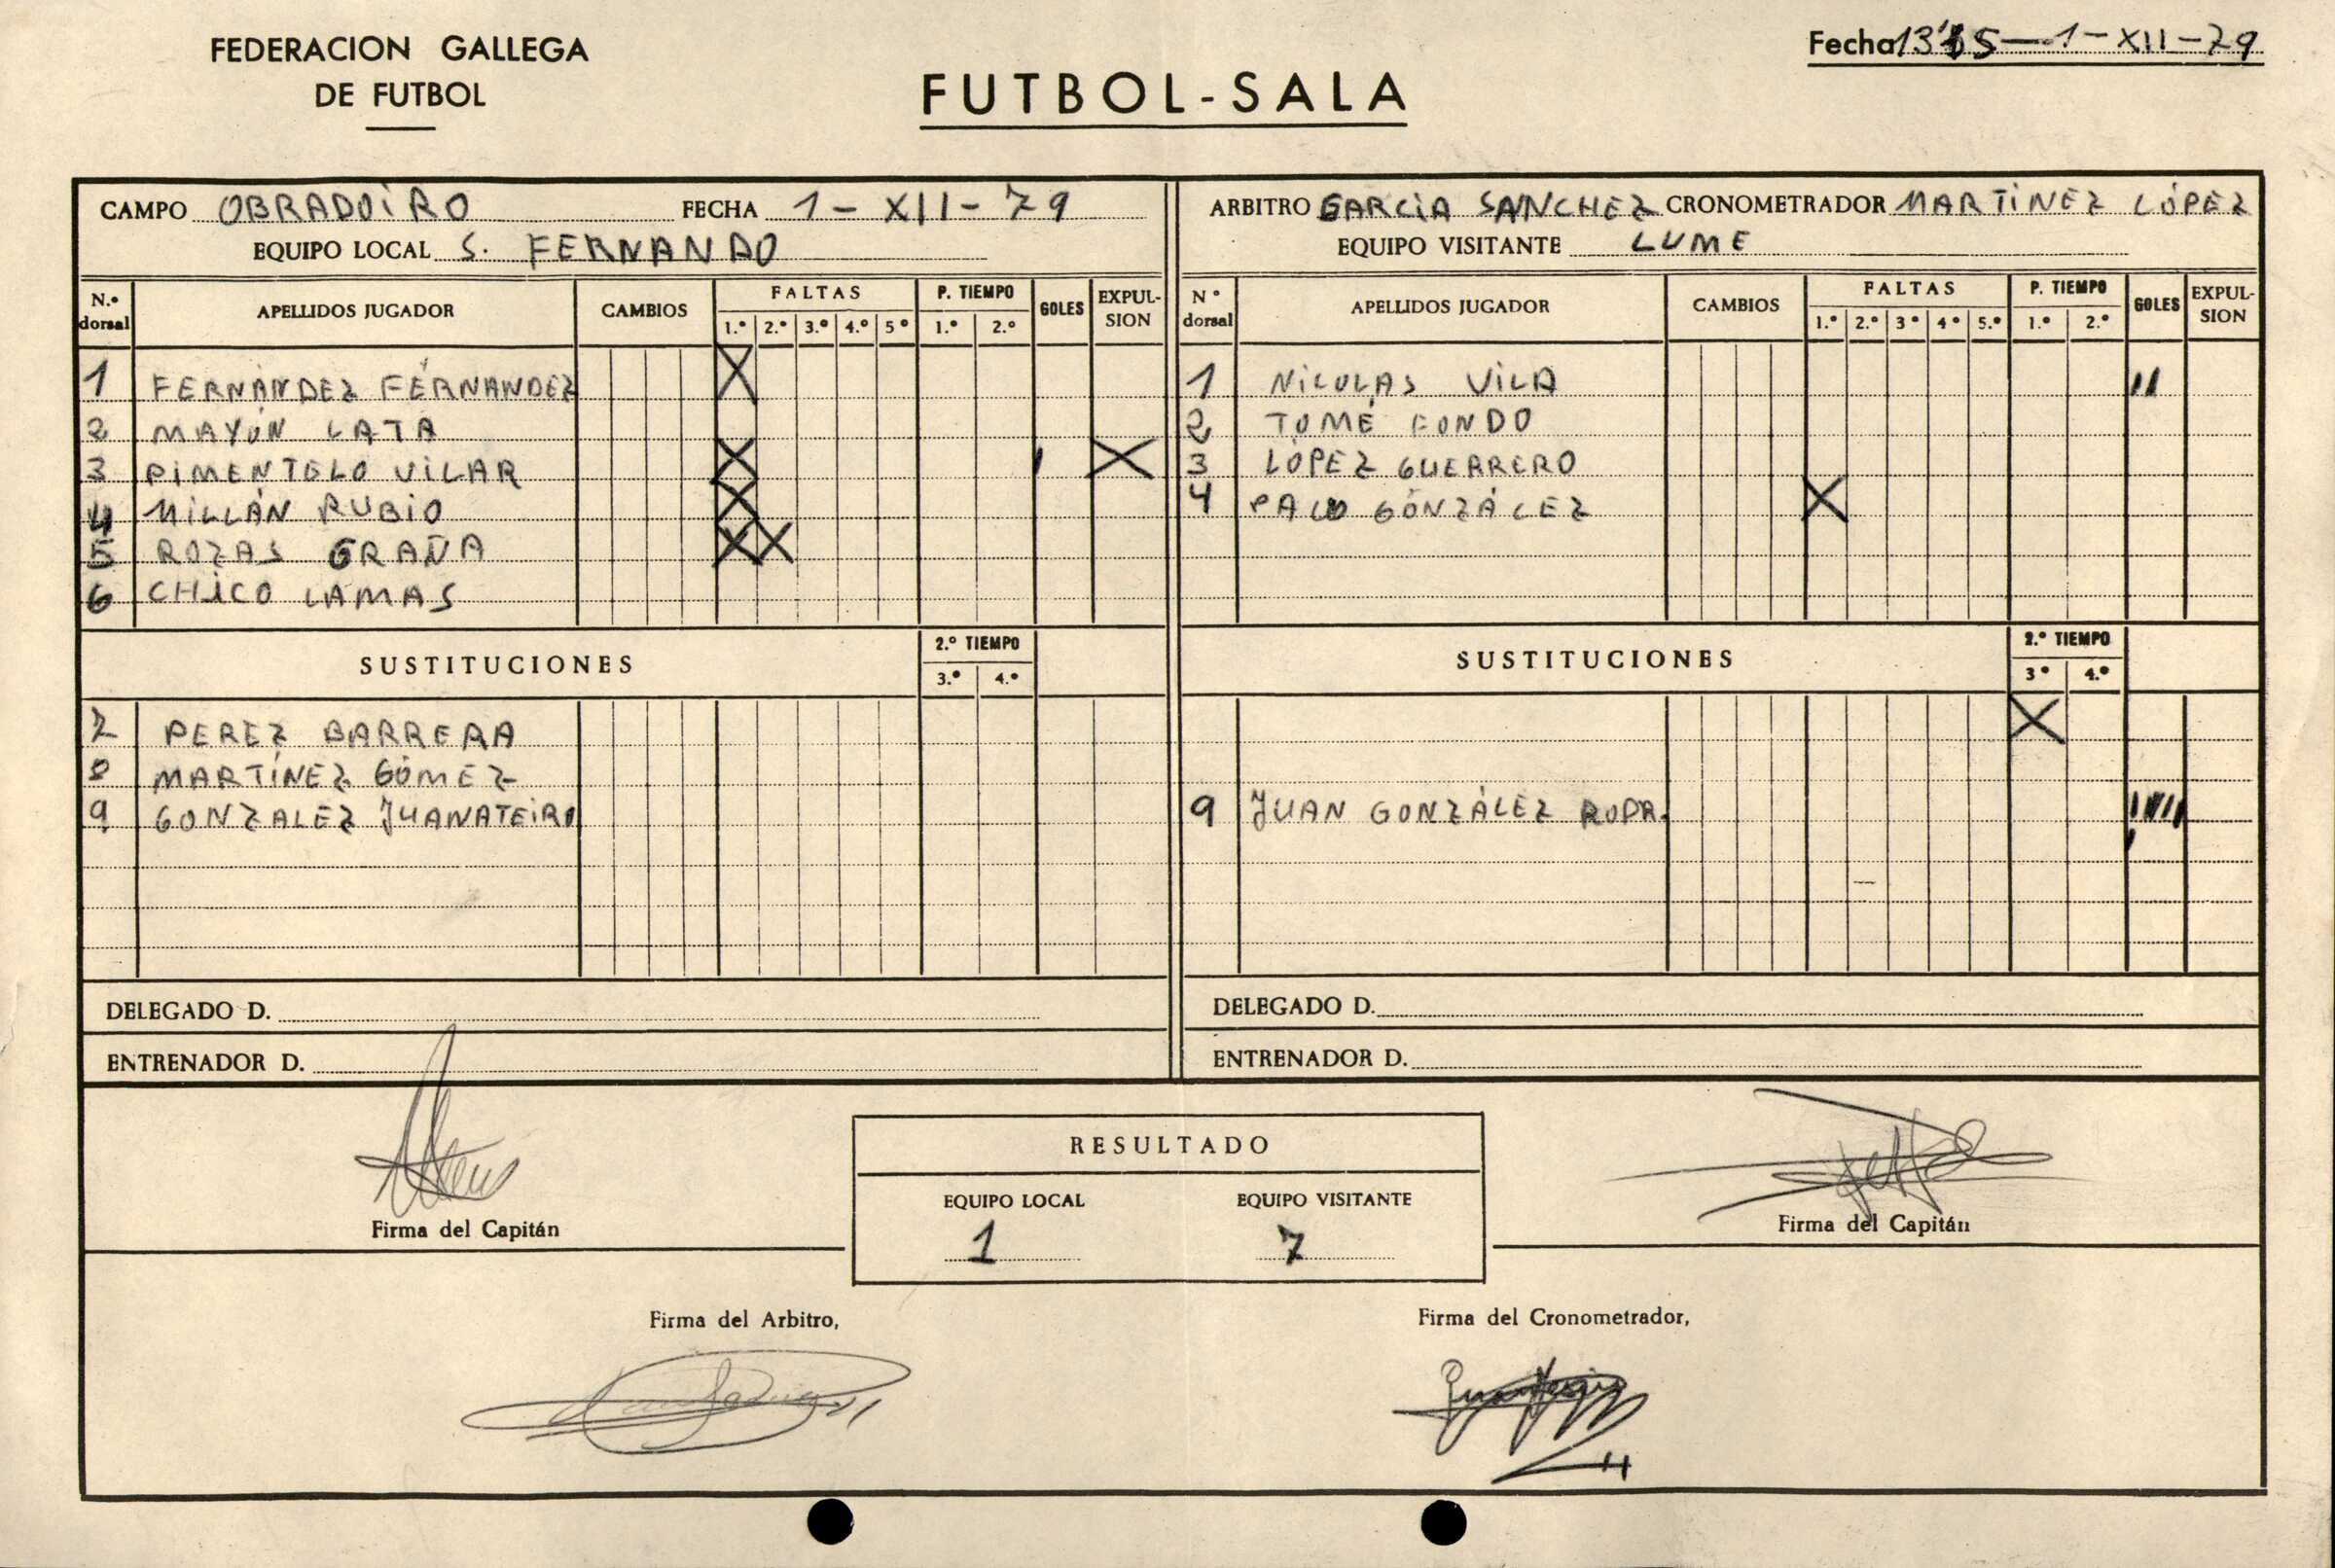 FEDERACION GALLEGA
DE FUTBOL
FUTBOL-SALA
Fecha 13'15 — 1-XII-79
CAMPO OBRADOIRO FECHA 1-XII-79
EQUIPO LOCAL S. FERNANDO
N.º dorsal APELLIDOS JUGADOR CAMBIOS FALTAS 1.º 2.º 3.º 4.º 5º P. TIEMPO 1.º 2.º GOLES EXPULSION
1 FERNÁNDEZ FÉRNANDEZ X
2 MAYÓN LATA
3 PIMENTELO VILAR X I X
4 MILLÁN RUBIO X
5 ROZAS GRAÑA X X
6 CHICO LAMAS
SUSTITUCIONES 2.º TIEMPO 3.º 4.º
7 PEREZ BARRERA
8 MARTÍNEZ GÓMEZ
9 GONZALEZ JUANATEIRO
DELEGADO D.
ENTRENADOR D.
ARBITRO GARCÍA SANCHEZ CRONOMETRADOR MARTÍNEZ LÓPEZ
EQUIPO VISITANTE LUME
Nº dorsal APELLIDOS JUGADOR CAMBIOS FALTAS 1.º 2.º 3º 4º 5.º P. TIEMPO 1.º 2.º GOLES EXPULSION
1 NICOLAS VILA II
2 TOMÉ FONDO
3 LÓPEZ GUERRERO
4 GONZÁLEZ X
SUSTITUCIONES 2.º TIEMPO 3º 4.º
X
9 JUAN GONZÁLEZ RODR. IIIII
DELEGADO D.
ENTRENADOR D.
Firma del Capitán
RESULTADO
EQUIPO LOCAL EQUIPO VISITANTE
1 7
Firma del Capitán
Firma del Arbitro,
Firma del Cronometrador,